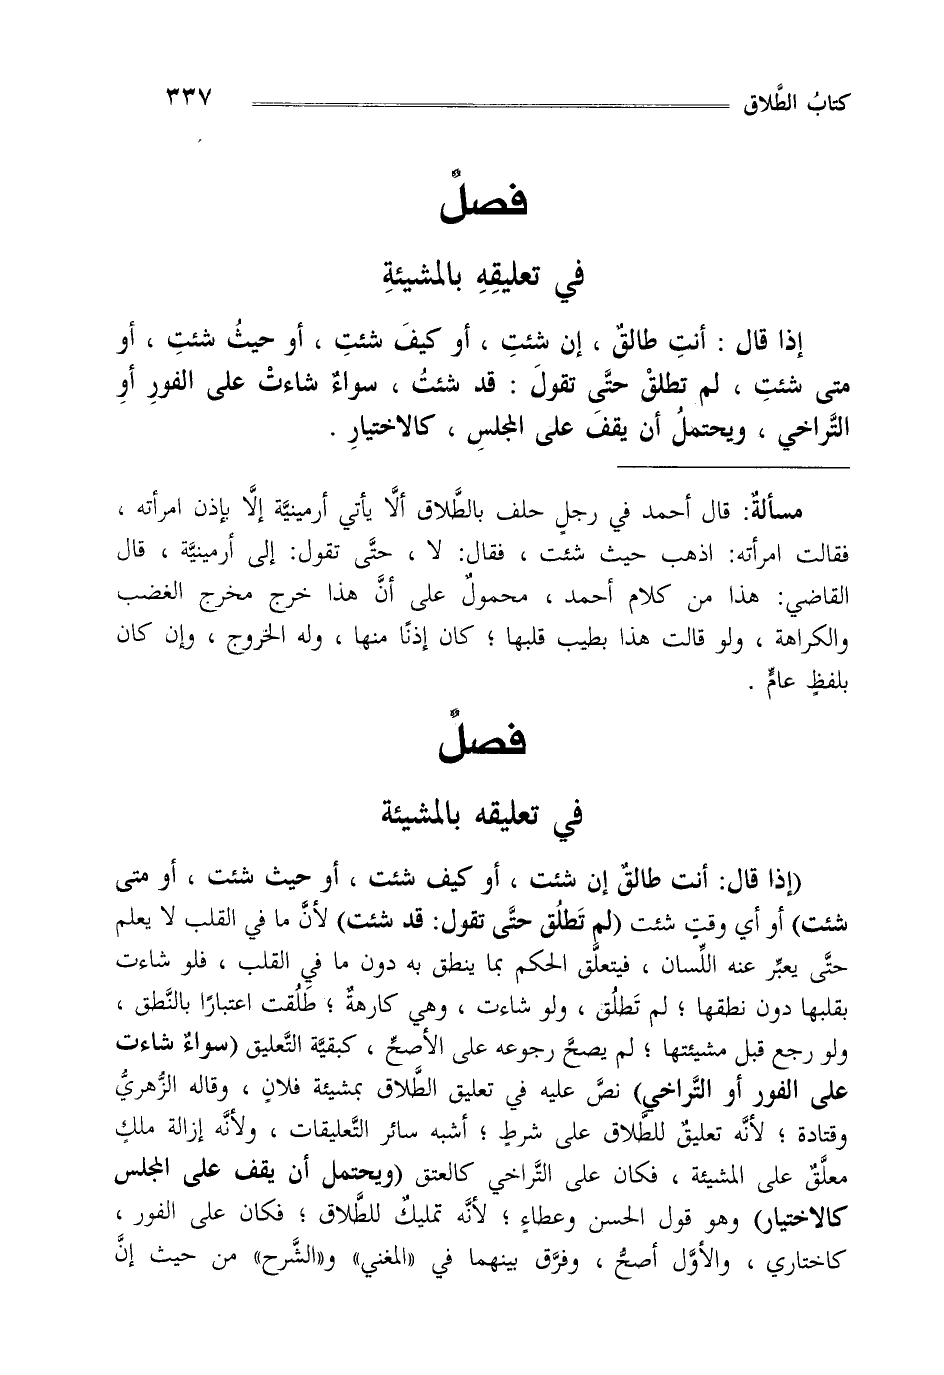 كتابُ الطَّلاق ٣٣٧
فصلٌ
في تعليقِهِ بالمشيئةِ
إذا قال : أنتِ طالقٌ ، إن شئتِ ، أو كيفَ شئتِ ، أو حيثُ شئتِ ، أو
متى شئتِ ، لم تطلقْ حتَّى تقولَ : قد شئتُ ، سواءٌ شاءتْ على الفورِ أوِ
التَّراخي ، ويحتملُ أن يقفَ على المجلسِ ، كالاختيارِ .
مسألةٌ: قال أحمد في رجلٍ حلف بالطَّلاق ألَّا يأتي أرمينيَّة إلَّا بإذن امرأته ،
فقالت امرأته: اذهب حيث شئت ، فقال: لا ، حتَّى تقول: إلى أرمينيَّة ، قال
القاضي: هذا من كلام أحمد ، محمولٌ على أنَّ هذا خرج مخرج الغضب
والكراهة ، ولو قالت هذا بطيب قلبها ؛ كان إذنًا منها ، وله الخروج ، وإن كان
بلفظٍ عامٍّ .
فصلٌ
في تعليقه بالمشيئة
(إذا قال: أنت طالقٌ إن شئت ، أو كيف شئت ، أو حيث شئت ، أو متى
شئت) أو أي وقتٍ شئت (لم تَطلُق حتَّى تقول: قد شئت) لأنَّ ما في القلب لا يعلم
حتَّى يعبِّر عنه اللِّسان ، فيتعلَّق الحكم بما ينطق به دون ما في القلب ، فلو شاءت
بقلبها دون نطقها ؛ لم تَطلُق ، ولو شاءت ، وهي كارهةٌ ؛ طَلُقت اعتبارًا بالنَّطق ،
ولو رجع قبل مشيئتها ؛ لم يصحَّ رجوعه على الأصحِّ ، كبقيَّة التَّعليق (سواءٌ شاءت
على الفور أو التَّراخي) نصَّ عليه في تعليق الطَّلاق بمشيئة فلانٍ ، وقاله الزُّهريُّ
وقتادة ؛ لأنَّه تعليقٌ للطَّلاق على شرطٍ ؛ أشبه سائر التَّعليقات ، ولأنَّه إزالة ملكٍ
معلَّقٌ على المشيئة ، فكان على التَّراخي كالعتق (ويحتمل أن يقف على المجلس
كالاختيار) وهو قول الحسن وعطاءٍ ؛ لأنَّه تمليكٌ للطَّلاق ؛ فكان على الفور ،
كاختاري ، والأوَّل أصحُّ ، وفرَّق بينهما في «المغني» و«الشَّرح» من حيث إنَّ